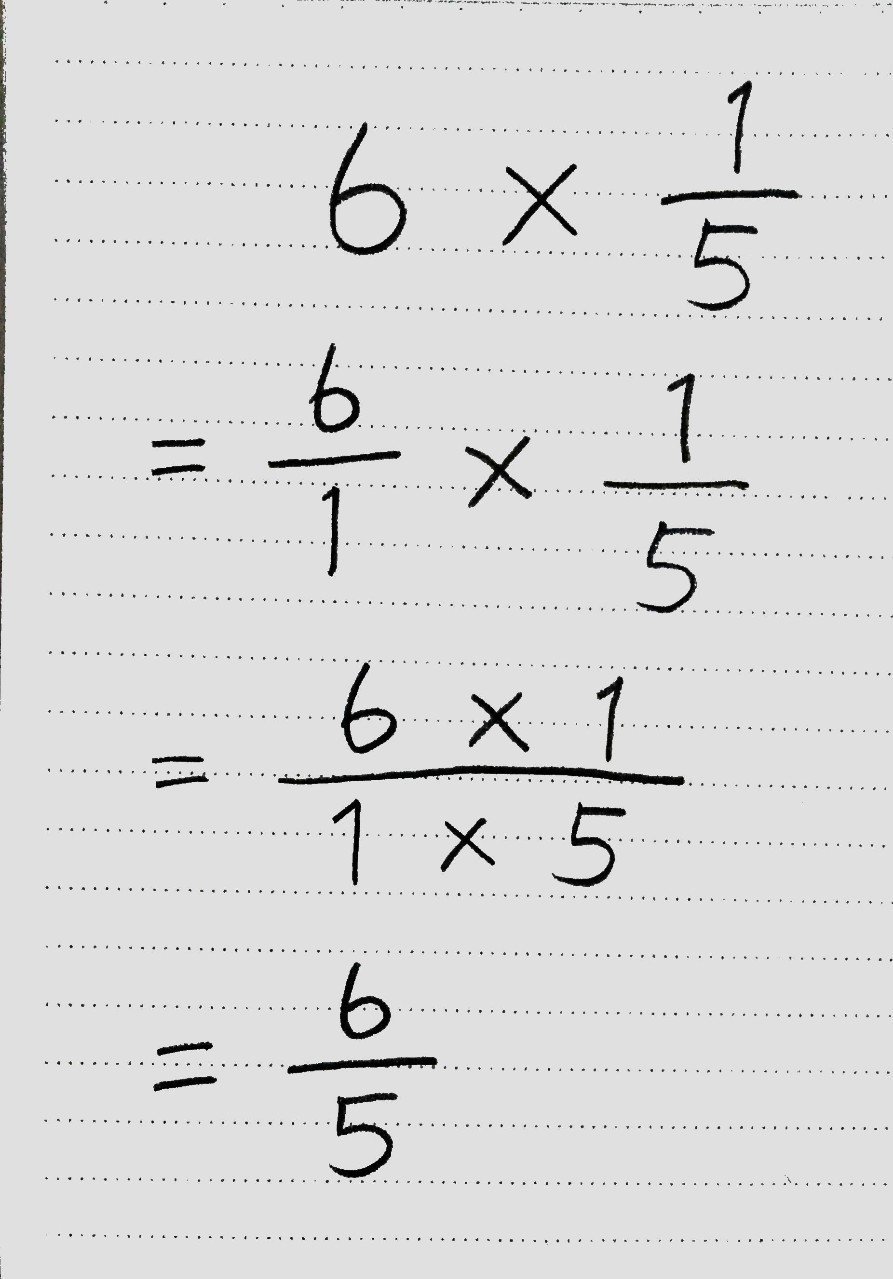 6 × 1/5
= 6/1 × 1/5
= (6 × 1)/(1 × 5)
= 6/5